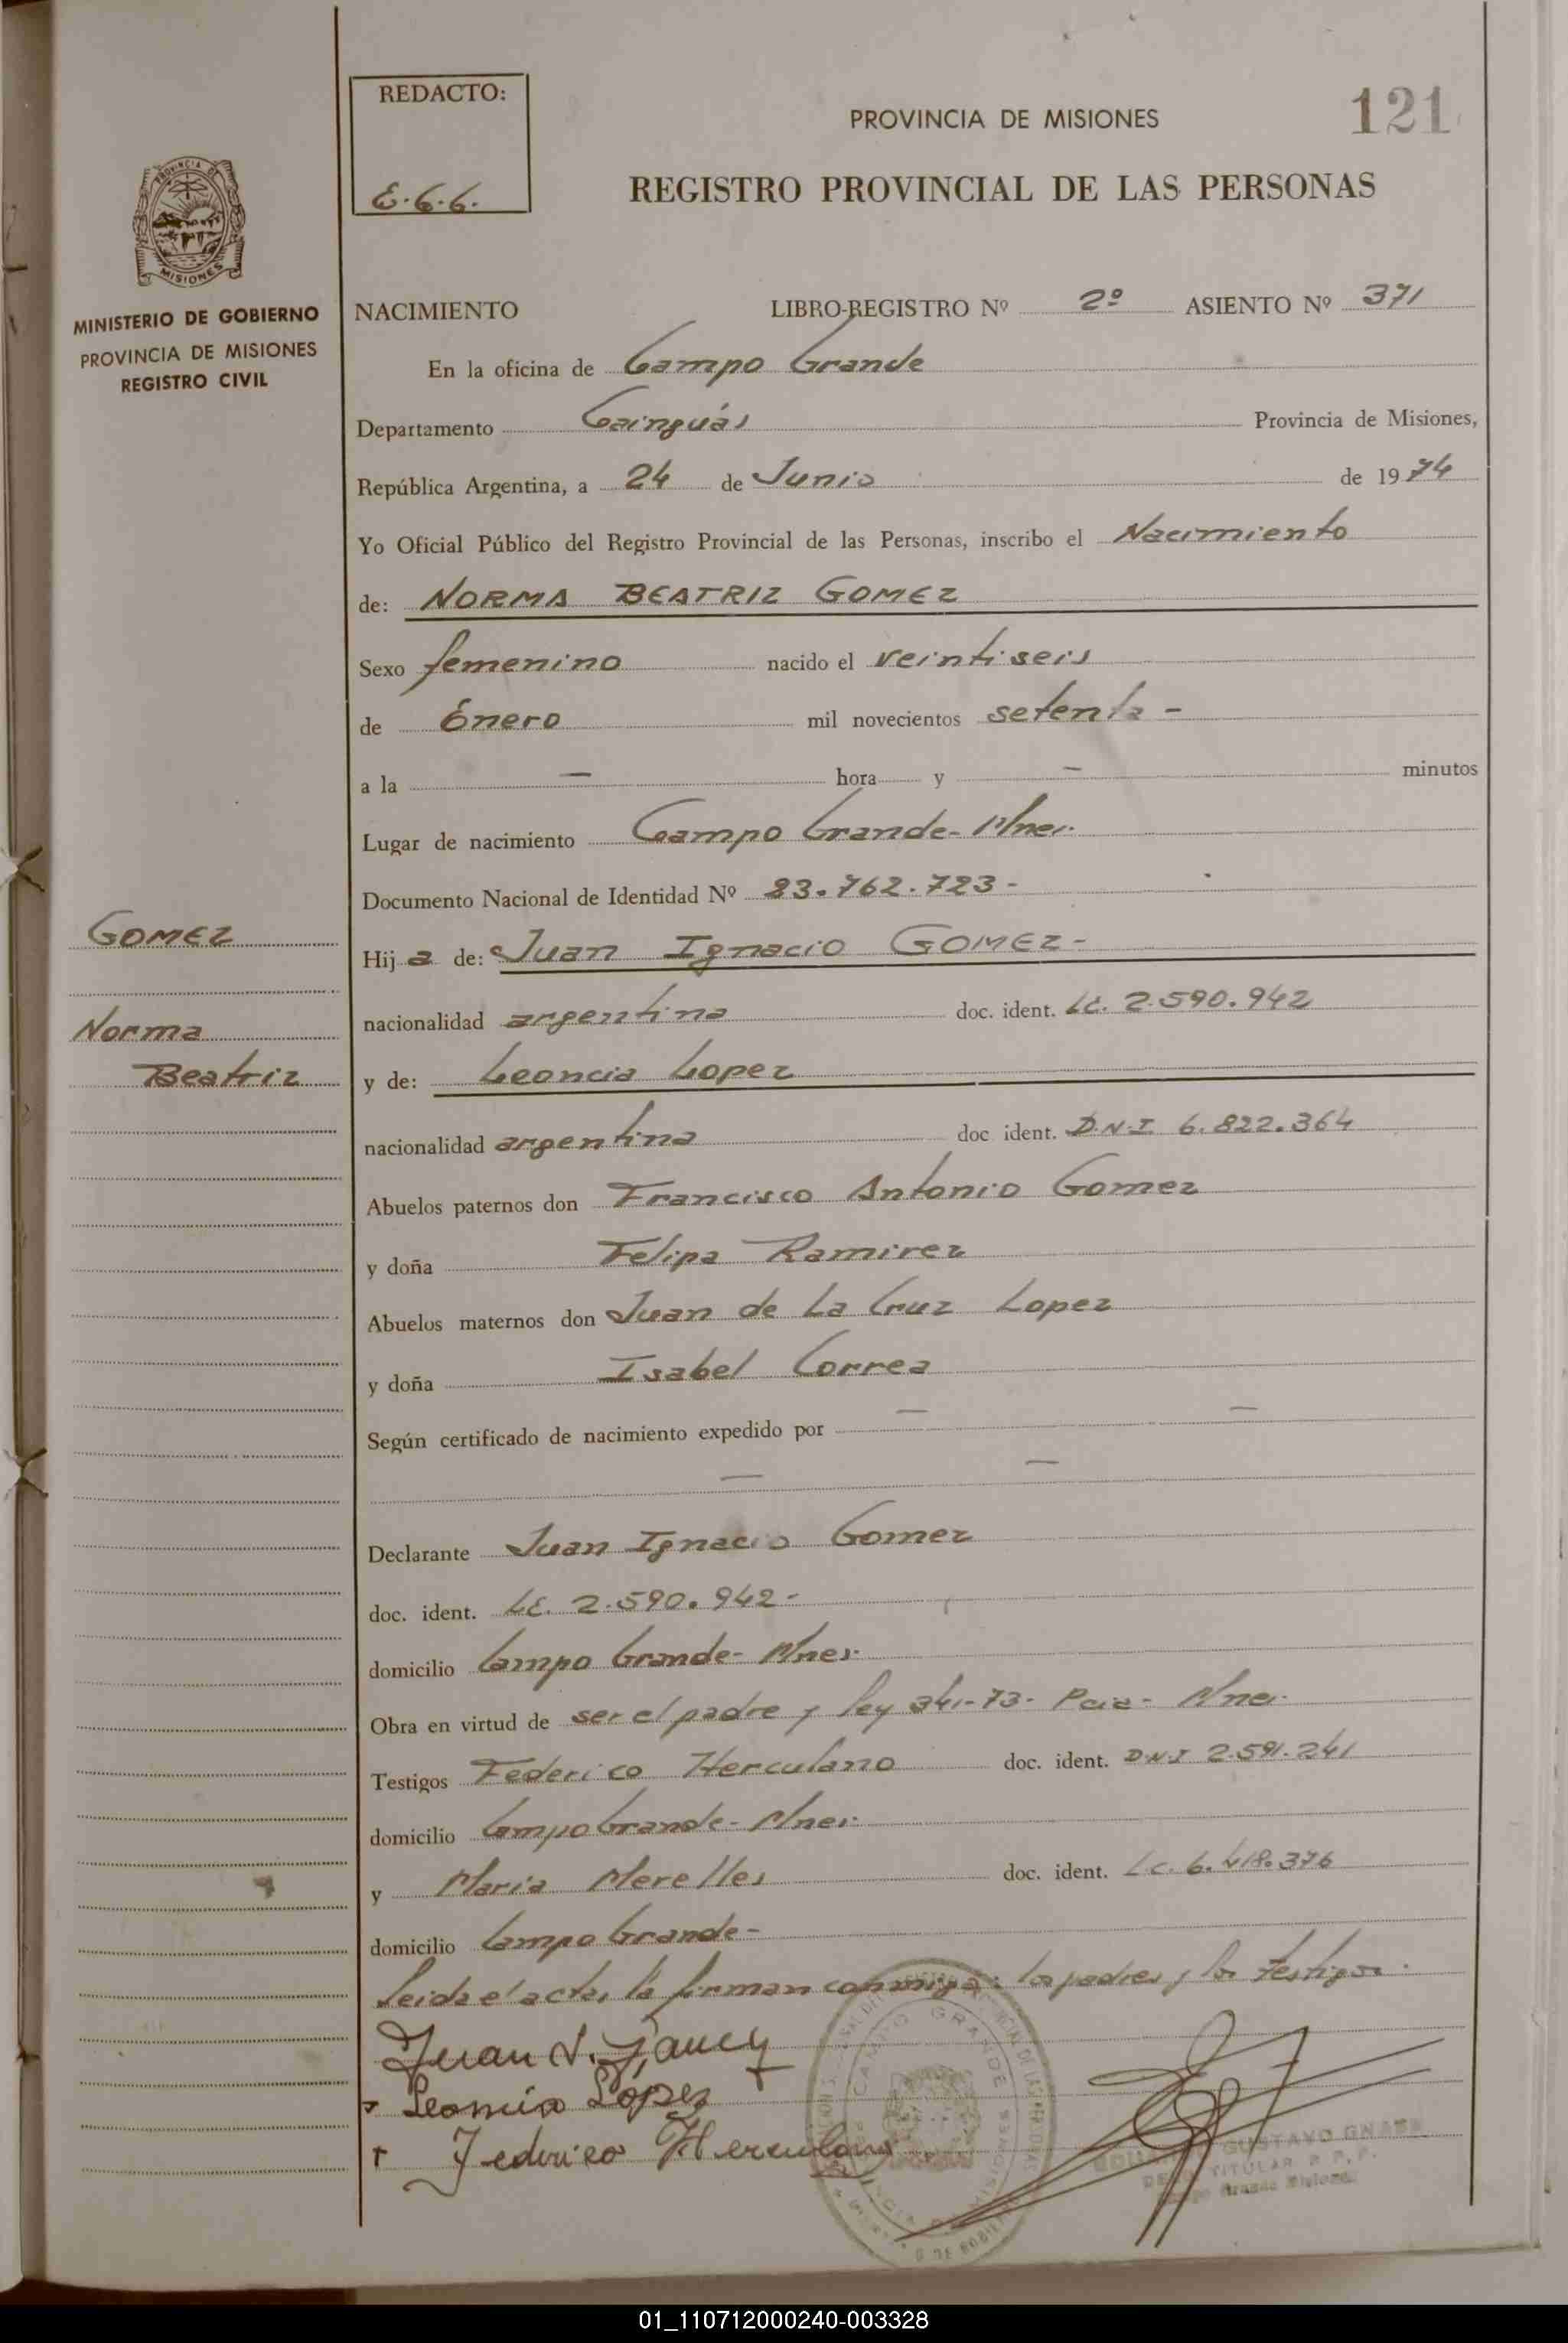 REDACTO:
E.G.G.
PROVINCIA DE MISIONES
121
REGISTRO PROVINCIAL DE LAS PERSONAS
PROVINCIA DE
MISIONES
MINISTERIO DE GOBIERNO
PROVINCIA DE MISIONES
REGISTRO CIVIL
NACIMIENTO LIBRO-REGISTRO Nº 2º ASIENTO Nº 371
En la oficina de Campo Grande
Departamento Cainguás Provincia de Misiones,
República Argentina, a 24 de Junio de 1974
Yo Oficial Público del Registro Provincial de las Personas, inscribo el Nacimiento
de: NORMA BEATRIZ GOMEZ
Sexo femenino nacido el veintiseis
de Enero mil novecientos setenta -
a la — hora y — minutos
Lugar de nacimiento Campo Grande - Mnes.
Documento Nacional de Identidad Nº 23.762.723 -
GOMEZ
Hija de: Juan Ignacio GOMEZ -
nacionalidad argentina doc. ident. LE. 2.590.942
Norma
Beatriz
y de: Leoncia Lopez
nacionalidad argentina doc ident. D.N.I. 6.822.364
Abuelos paternos don Francisco Antonio Gomez
y doña Felipa Ramirez
Abuelos maternos don Juan de La Cruz Lopez
y doña Isabel Correa
Según certificado de nacimiento expedido por — —
— —
Declarante Juan Ignacio Gomez
doc. ident. LE. 2.590.942 -
domicilio Campo Grande - Mnes.
Obra en virtud de ser el padre y ley 341-73 - Pcia - Mnes.
Testigos Federico Herculano doc. ident. D.N.I 2.591.241
domicilio Campo Grande - Mnes.
y Maria Merelles doc. ident. L.C. 6.418.376
domicilio Campo Grande -
Leida el acta, la firman conmigo: los padres y los testigos.
Juan I.
Leoncia López
Federico Herculano
CAMPO GRANDE MISIONES
GUSTAVO
TITULAR R. P. P.
Campo Grande Misiones
01_110712000240-003328